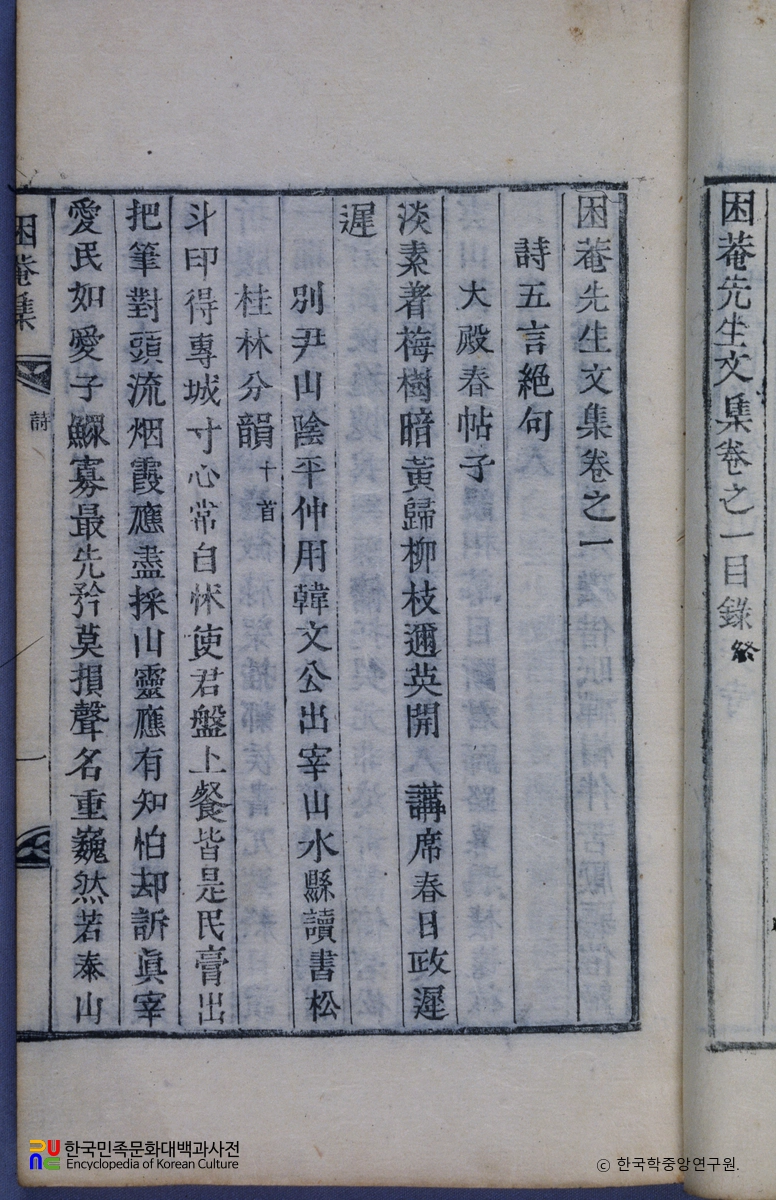 困菴先生文集卷之一目錄終
困菴先生文集卷之一
詩五言絕句
大殿春帖子
淡素着梅樹暗黃歸柳枝邇英開 講席春日政遲
遲
別尹山陰平仲用韓文公出宰山水縣讀書松
桂林分韻十首
斗印得專城寸心常自怵使君盤上餐皆是民膏出
把筆對頭流烟霞應盡採山靈應有知怕却訴眞宰
愛民如愛子鰥寡最先矜莫損聲名重巍然若泰山
困菴集
詩
一
한국민족문화대백과사전
Encyclopedia of Korean Culture
ⓒ 한국학중앙연구원.